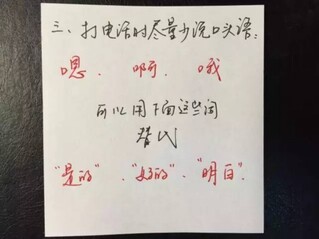 三、打电话时尽量少说口头语：
嗯、啊、哦
可以用下面这些词
替代
“是的”、“好的”、“明白”.